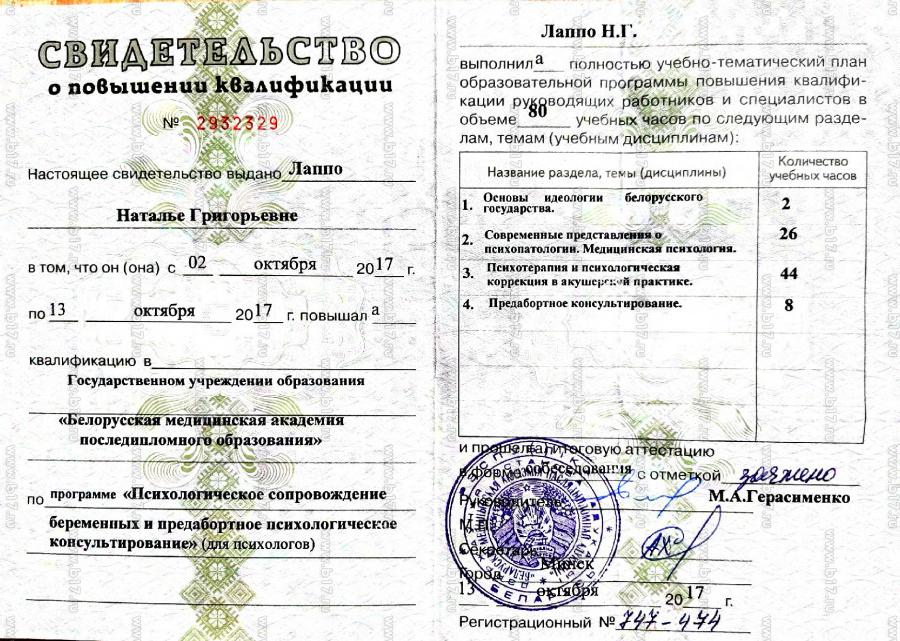 СВИДЕТЕЛЬСТВО
о повышении квалификации
№ 2932329
Настоящее свидетельство выдано Лаппо
Наталье Григорьевне
в том, что он (она) с 02 октября 2017 г.
по 13 октября 2017 г. повышал а
квалификацию в
Государственном учреждении образования
«Белорусская медицинская академия
последипломного образования»
по программе «Психологическое сопровождение
беременных и предабортное психологическое
консультирование» (для психологов)
Лаппо Н.Г.
выполнил а полностью учебно-тематический план
образовательной программы повышения квалифи-
кации руководящих работников и специалистов в
объеме 80 учебных часов по следующим разде-
лам, темам (учебным дисциплинам):
Название раздела, темы (дисциплины) Количество учебных часов
1. Основы идеологии белорусского
государства. 2
2. Современные представления о
психопатологии. Медицинская психология. 26
3. Психотерапия и психологическая
коррекция в акушерской практике. 44
4. Предабортное консультирование. 8
и прошел а итоговую аттестацию
в форме собеседования с отметкой зачтено
Руководитель М.А.Герасименко
М.П.
Секретарь
Город Минск
13 октября 2017 г.
Регистрационный № 747-474
www.b17.ru